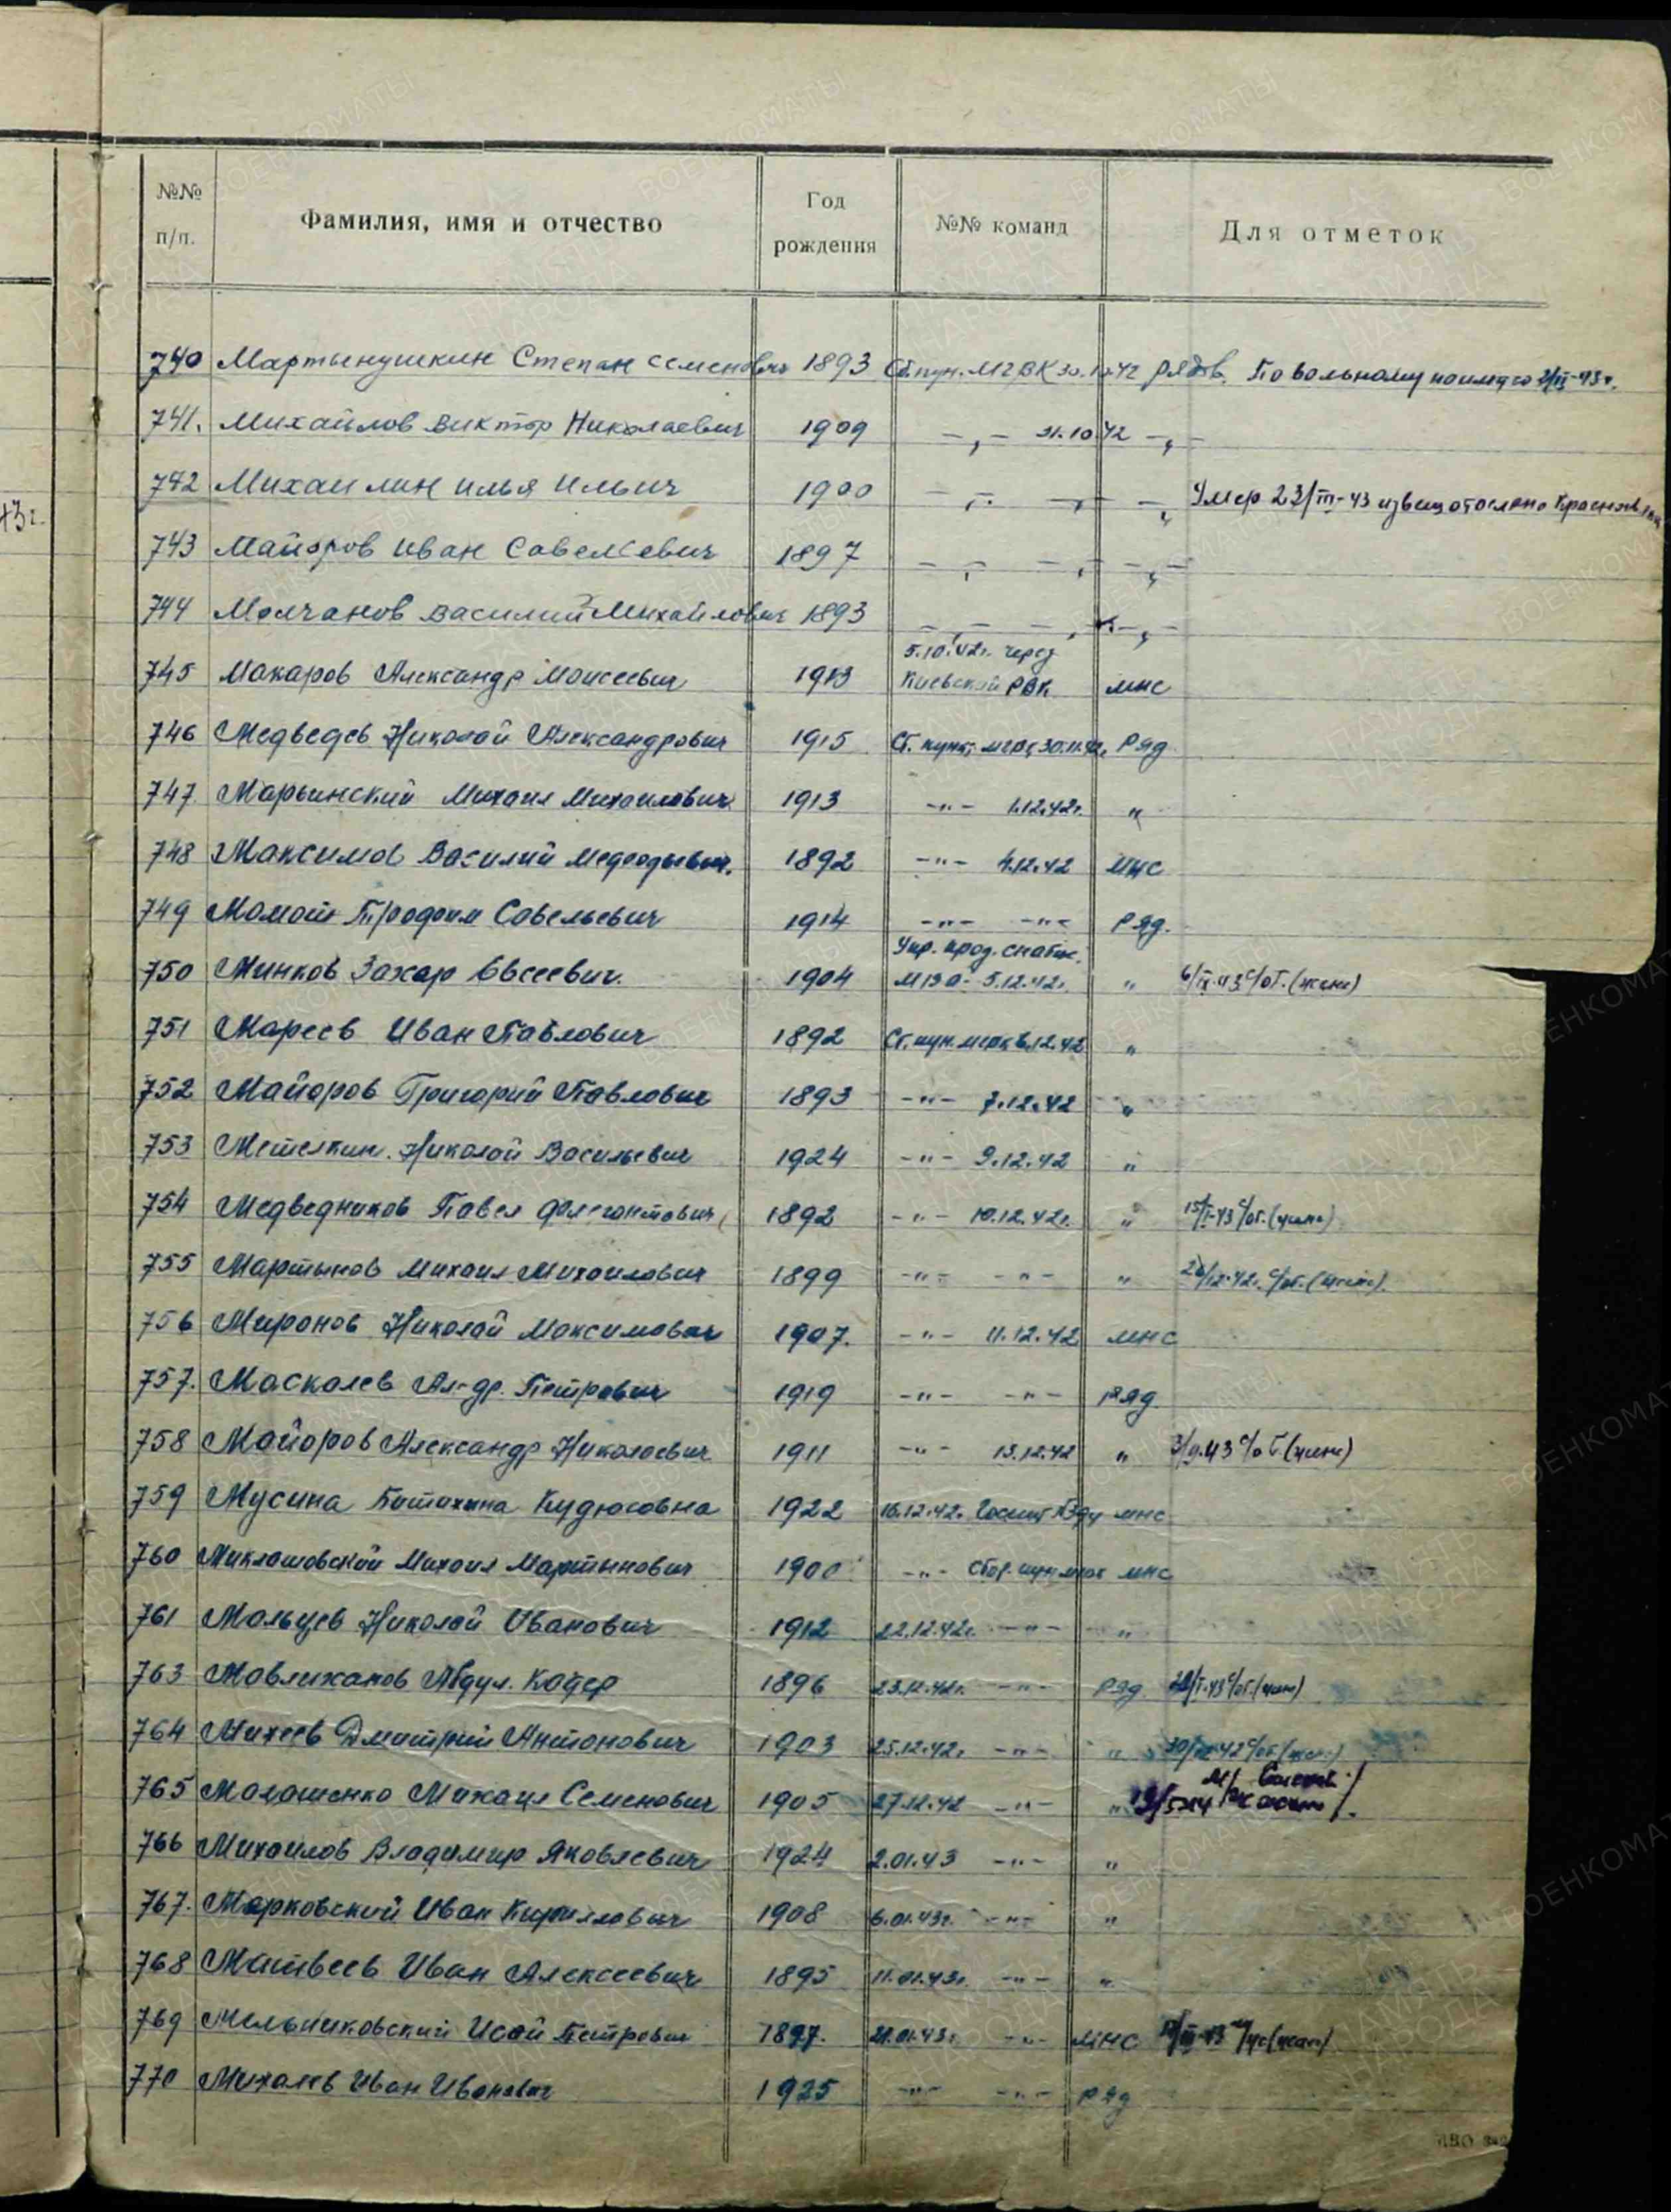 №№ п/п.
Фамилия, имя и отчество
Год рождения
№№ команд
Для отметок
43г.
740 Мартынушкин Степан Семенович 1893 Сб.пун. МГВК 30.10.42 рядов. По вольному найму со
741. Михайлов Виктор Николаевич 1909 -„- 31.10.42 -„-
742 Михаилин Илья Ильич 1900 -„- -„- -„- Умер 23/III-43 извещ отослано
743 Майоров Иван Савельевич 1897 -„- -„- -„-
744 Молчанов Василий Михайлович 1893 -„- -„- -„-
5.10.42г. через
745 Макаров Александр Моисеевич 1913 Киевский РВК мнс
746 Медведев Николай Александрович 1915 Сб. пункт МГВК 30.11.42г. Ряд
747 Марьинский Михаил Михаилович 1913 -„- 1.12.42г. „
748 Максимов Василий Мефодьевич. 1892 -„- 4.12.42 мнс
749 Момот Трофим Савельевич 1914 -„- -„- Ряд.
Упр. прод. снабж.
750 Минков Захар Евсеевич. 1904 МВО - 5.12.42г. „ с/об. (жене)
751 Мареев Иван Павлович 1892 Сб. пун. МГВК 6.12.42 „
752 Майоров Григорий Павлович 1893 -„- 7.12.42 „
753 Метелкин Николай Васильевич 1924 -„- 9.12.42 „
754 Медведников Павел Флегонтович 1892 -„- 10.12.42г. „ 15/I-43 с/об. (жене)
755 Мартынов Михаил Михаилович 1899 -„- -„- „ 26/12.42г. с/об. (жене).
756 Миронов Николай Максимович 1907. -„- 11.12.42 мнс
757. Маскалев Ал-др. Петрович 1919 -„- -„- Ряд
758 Майоров Александр Николаевич 1911 -„- 13.12.42 „ с/об. (жене)
759 Мусина Кудюсовна 1922 16.12.42г. мнс
760 Миклашовский Михаил Мартынович 1900 -„- Сбор. пун. мнс
761 Мальцев Николай Иванович 1912 22.12.42г. -„- „
763 Мавлиханов Абдул. Кадер 1896 23.12.42г. -„- Ряд. с/об. (жене)
764 Михеев Дмитрий Антонович 1903 25.12.42г. -„- „
765 Малашенко Михаил Семенович 1905 27.12.42 -„- „
766 Михаилов Владимир Яковлевич 1924 2.01.43 -„- „
767. Марковский Иван Кириллович 1908 6.01.43г. -„- „
768 Матвеев Иван Алексеевич 1895 11.01.43г. -„- „
769 Мельниковский Исай Петрович 1897. 21.01.43г. -„- мнс
770 Михалев Иван Иванович 1925 -„- -„- Ряд